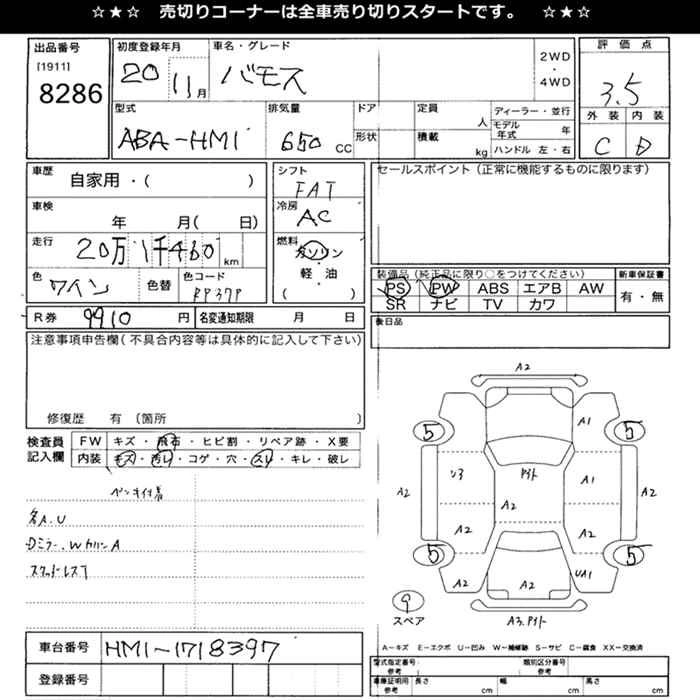 ☆★☆ 売切りコーナーは全車売り切りスタートです。 ☆★☆
出品番号
[1911]
8286
初度登録年月
20 11月
車名・グレード
バモス
2WD
・
4WD
評価点
3.5
外装 内装
C D
型式
ABA-HM1
排気量
650 CC
ドア
形状
定員
人
積載
kg
ディーラー・並行
モデル年式 年
ハンドル 左・右
車歴
自家用・( )
車検
年 月( 日)
走行
20万1千460 km
色
ワイン
色替
色コード
RP37P
シフト
FAT
冷房
AC
燃料
ガソリン
・
軽・油
( )
セールスポイント(正常に機能するものに限ります)
装備品(純正品に限り○をつけてください)
PS PW ABS エアB AW
SR ナビ TV カワ
新車保証書
有・無
R券 9910 円
名変通知期限 月 日
後日品
注意事項申告欄(不具合内容等は具体的に記入して下さい)
修復歴 有 (箇所 )
検査員
記入欄
FW キズ・飛石・ヒビ割・リペア跡・X要
内装 キズ・汚れ・コゲ・穴・スレ・キレ・破レ
ペンキ付着
各A.U
Dミラー.WカリンA
A2
5 A1 5
A2 A1 A2
A2
A2 A2
5 5
A2 A2 UA1
9
スペア
A3.
A-キズ E-エクボ U-凹み W-補修跡 S-サビ C-腐食 XX-交換済
車台番号
HM1-1718397
登録番号
型式指定番号
参考
類別区分番号
参考
車庫証明用
参考
長さ cm
幅 cm
高さ cm